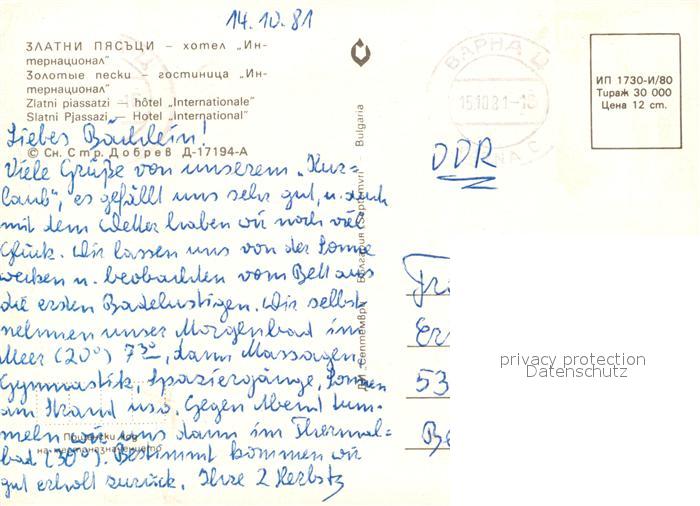 14.10.81
ЗЛАТНИ ПЯСЪЦИ – хотел „Ин-
тернационал"
Золотые пески – гостиница „Ин-
тернационал"
Zlatni piassatzi – hôtel „Internationale"
Slatni Pjassazi – Hotel „International"
© Сн. Стр. Добрев Д-17194-А
Liebes Bärchlein!
Viele Grüße von unserem „Kur=
laub", es gefällt uns sehr gut, u. auch
mit dem Wetter haben wir noch viel
Glück. Wir lassen uns von der Sonne
wecken u. beobachten vom Bett aus
die ersten Badelustigen. Wir selbst
nehmen unser Morgenbad im
Meer (20°) 7³⁰, dann Massagen,
Gymnastik, Spaziergänge, Sonnen
am Strand usw. Gegen Abend tum-
meln wir uns dann im Thermal=
bad (30°). Bestimmt kommen wir
gut erholt zurück. Ihre 2 Herbsts
Пощенски код
на местоназначението
България
Bulgaria
ДП „Септември"
(Septemvri)
ВАРНА Ц
15.10.81-18
VARNA C
ИП 1730-И/80
Тираж 30 000
Цена 12 cm.
DDR
53
privacy protection
Datenschutz